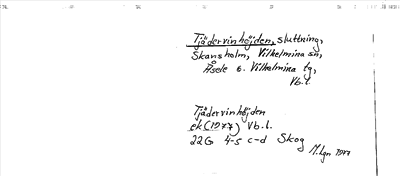 Tjädervinhöjden, sluttning,
Skansholm, Vilhelmina sn,
Åsele s. Vilhelmina tg,
Vb.l.
Tjädervinhöjden
ek (1977) Vb.l.
22G 4-5 c-d Skog
M.Lgn 1977